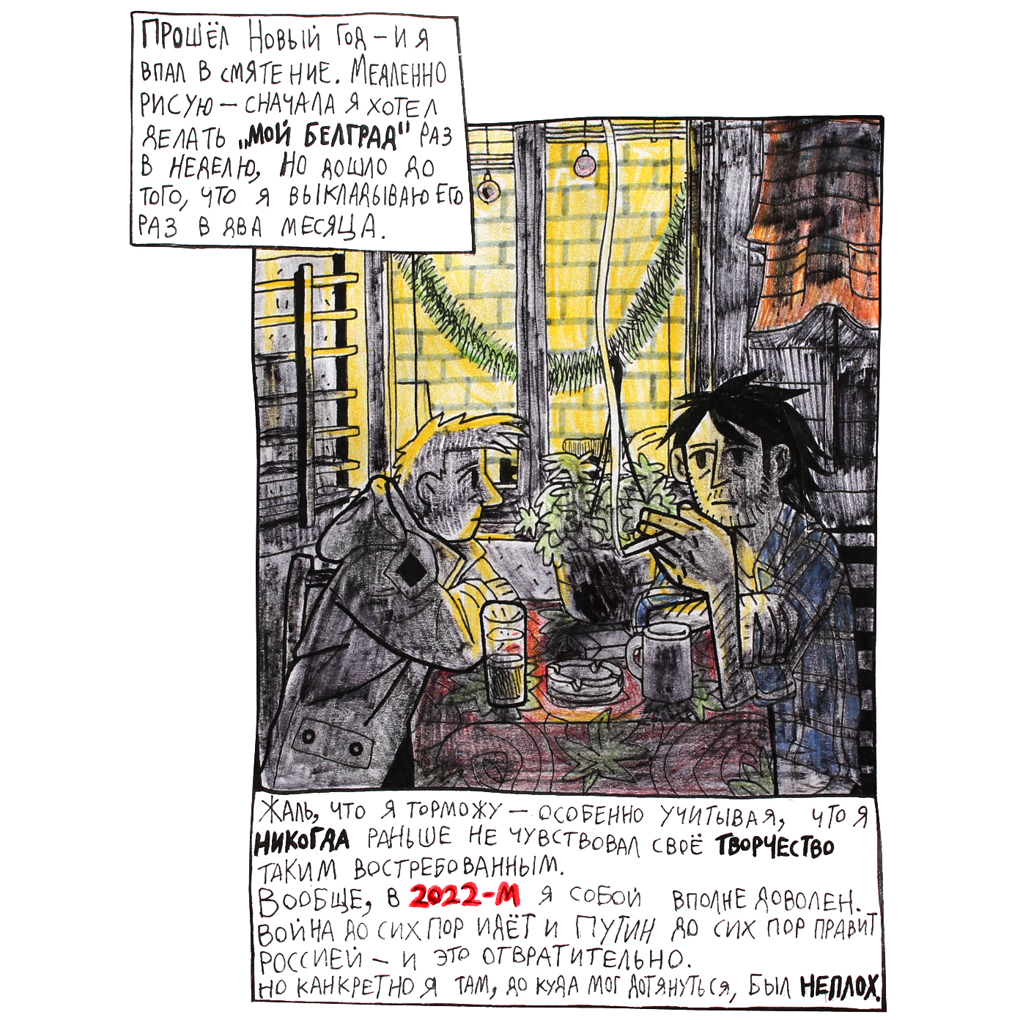 Прошёл Новый Год – и я
впал в смятение. Медленно
рисую – сначала я хотел
делать „МОЙ БЕЛГРАД" раз
в неделю, но дошло до
того, что я выкладываю его
раз в два месяца.
Жаль, что я торможу – особенно учитывая, что я
НИКОГДА раньше не чувствовал своё ТВОРЧЕСТВО
таким востребованным.
Вообще, в 2022-М я собой вполне доволен.
Война до сих пор идёт и Путин до сих пор правит
Россией – и это отвратительно.
Но канкретно я там, до куда мог дотянуться, был НЕПЛОХ.